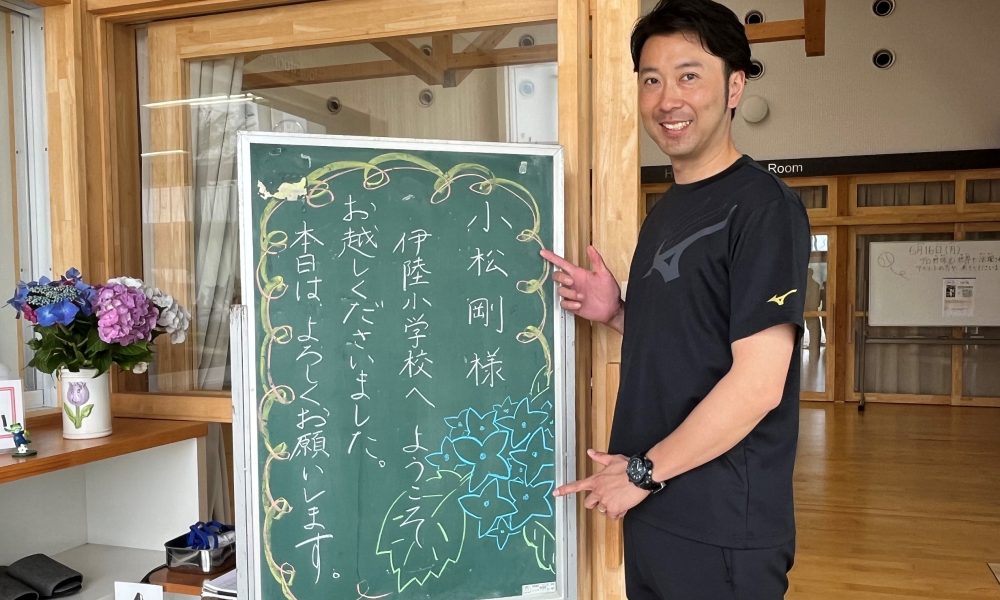 小松剛様
伊陸小学校へ ようこそ
お越しくださいました。
本日は、よろしくお願いします。
Room
6月16日(月)